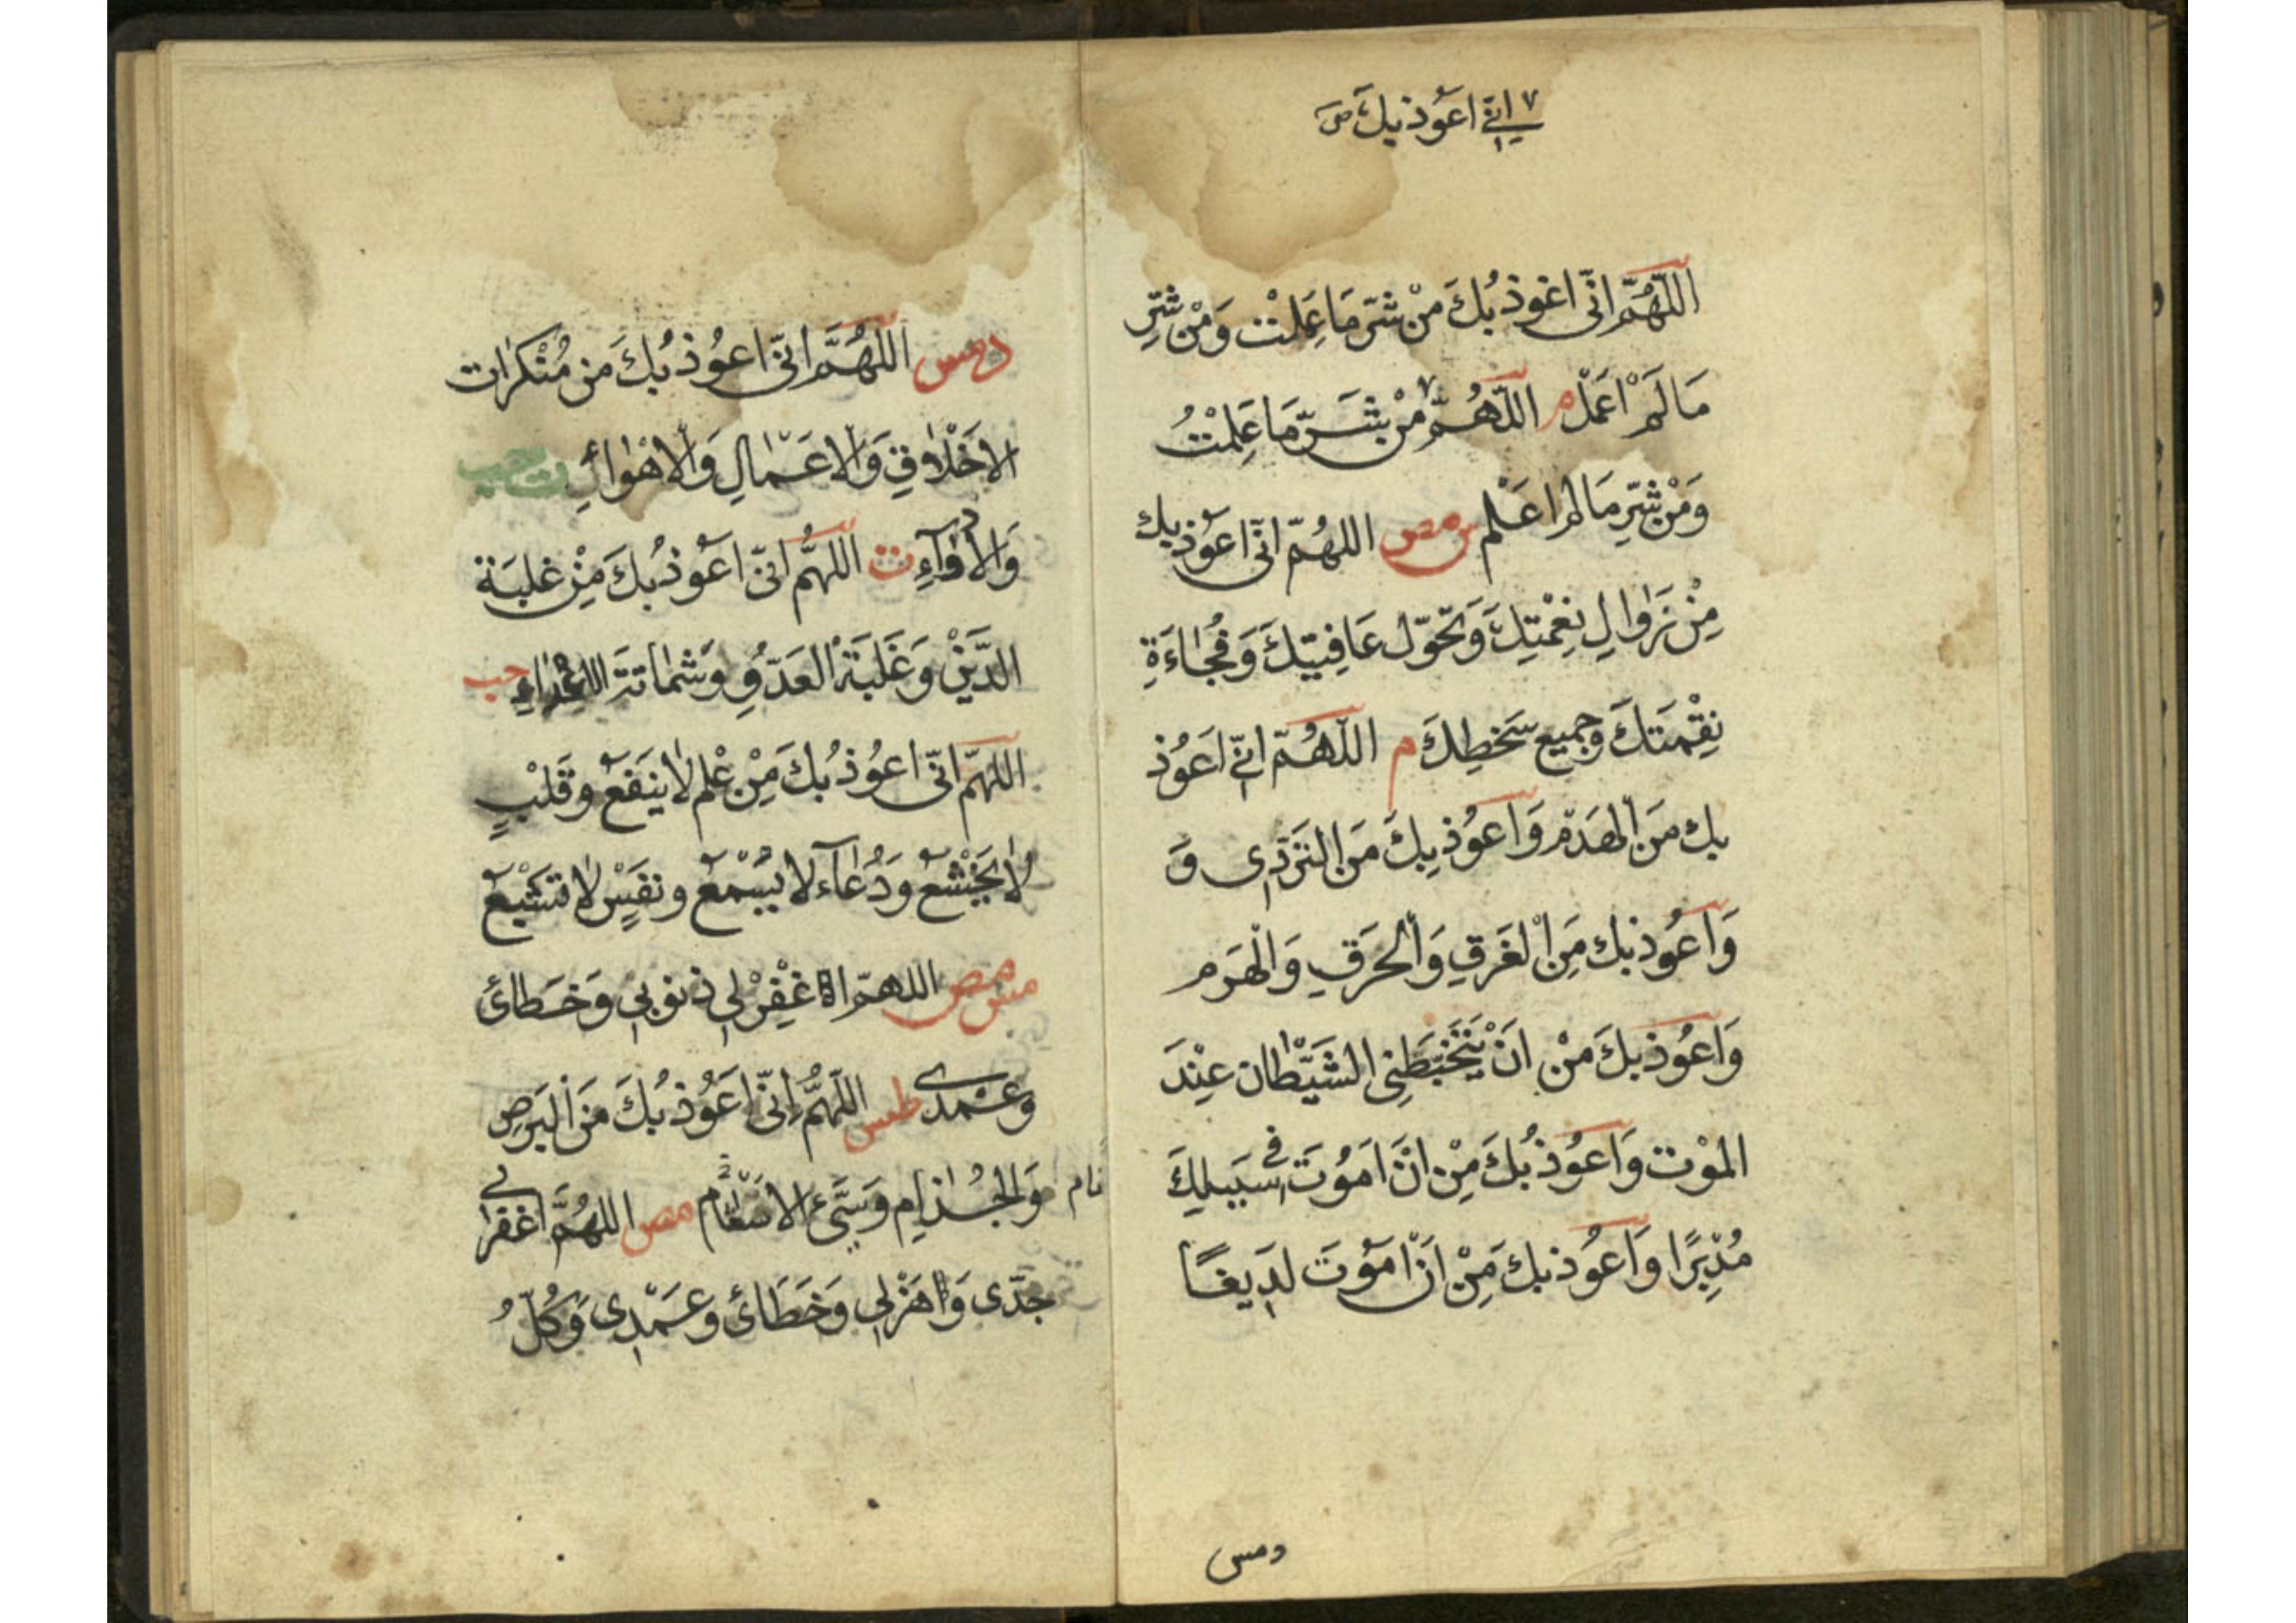 ٧ اني اعوذ بك صح
اللّهُمَّ انّى اعوذ بُكَ مِنْ شَرّ مَا عَمِلْت وَمْن شَرِّ
مَا لَمْ اَعْمَلْ م اللّهُمَّ ٧ مِنْ شَرّ مَا عَلِمْتُ
وَمْن شَرِّ مَا لم اعَلم س مص اللهُمّ انّى اعوُذ بك
مِنْ زَوالِ نِعْمَتِكَ وَتَحَوّل عَافِيَتِكَ وَفُجَاءَةِ
نِقْمَتكَ وَجميع سَخطِكَ م اللّهُمّ انّي اَعَوُذ
بك مَن الهَدَم وَاَعوُذ بِكَ مَن التَرَدّى وَ
وَاَعوُذ بك مَنِ الغَرَقِ وَالحَرَقِ وَالْهَرَم
وَاَعوُذ بكَ مِنْ انَ يَتَخَبّطَنِى الشَيْطان عِنْدَ
الموْت وَاَعوُذ بُكَ مِنْ انَ اَمَوُتَ في سَبيلِكَ
مُدْبِرًا وَاَعوُذ بك مِنْ انَ اَموُتَ لدَيغًا
دمس
دمس اللهُمَّ انّى اعوُذ بُكَ مِن مُنْكَرات
الاخْلاقِ وَالاعَمالِ وَالاهْواءِ ت حب
وَالادْوآءِ ت اللهُّم انّى اعَوُذ بُكَ مِنْ غلبَة
الدَّيْنِ وَغَلَبَة العَدّوِ وَشَماتَة الاعْداءِ حب
اللهّم انّى اعوُذ بُكَ مِنْ عْلم لا ينَفَعْ وقَلْبٍ
لا يَخْشَعْ ودُعآء لا يُسْمَعْ ونفَسٍ لا تشَبْعْ
مس مص اللهمّ اغْفِرْ لي ذنوبي وَخَطائ
وَعَمْدى طس اللّهُمّ اِنّى اَعَوُذ بُكَ مَن الْبَرَصِ
وَالجُذامِ وَسَيّئ الاسَقْام مص اللهُمَّ اغفر لي
جدّى وَهَزْلي وَخَطَائ وعَمْدى وَكُلّ